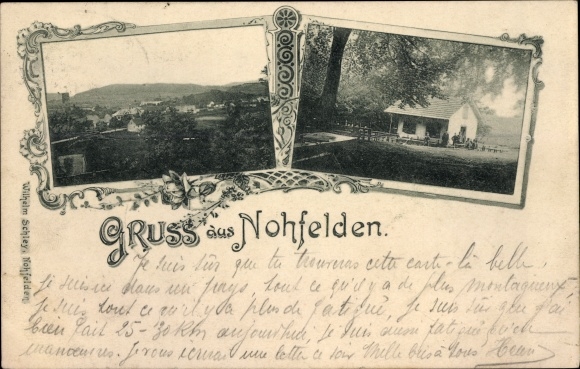 Gruss aus Nohfelden.
Wilhelm Schley, Nohfelden
Je suis sûr que tu trouveras cette carte-là belle.
je suis ici dans un pays, tout ce qu'il y a de plus montagneux
je suis tout ce qu'il y a plus de fatigué, je suis sûr que j'ai
bien fait 25-30 km aujourd'hui, je suis aussi fatigué qu'en
manœuvres. Je vous écrirai une lettre ce soir Mille bises à tous